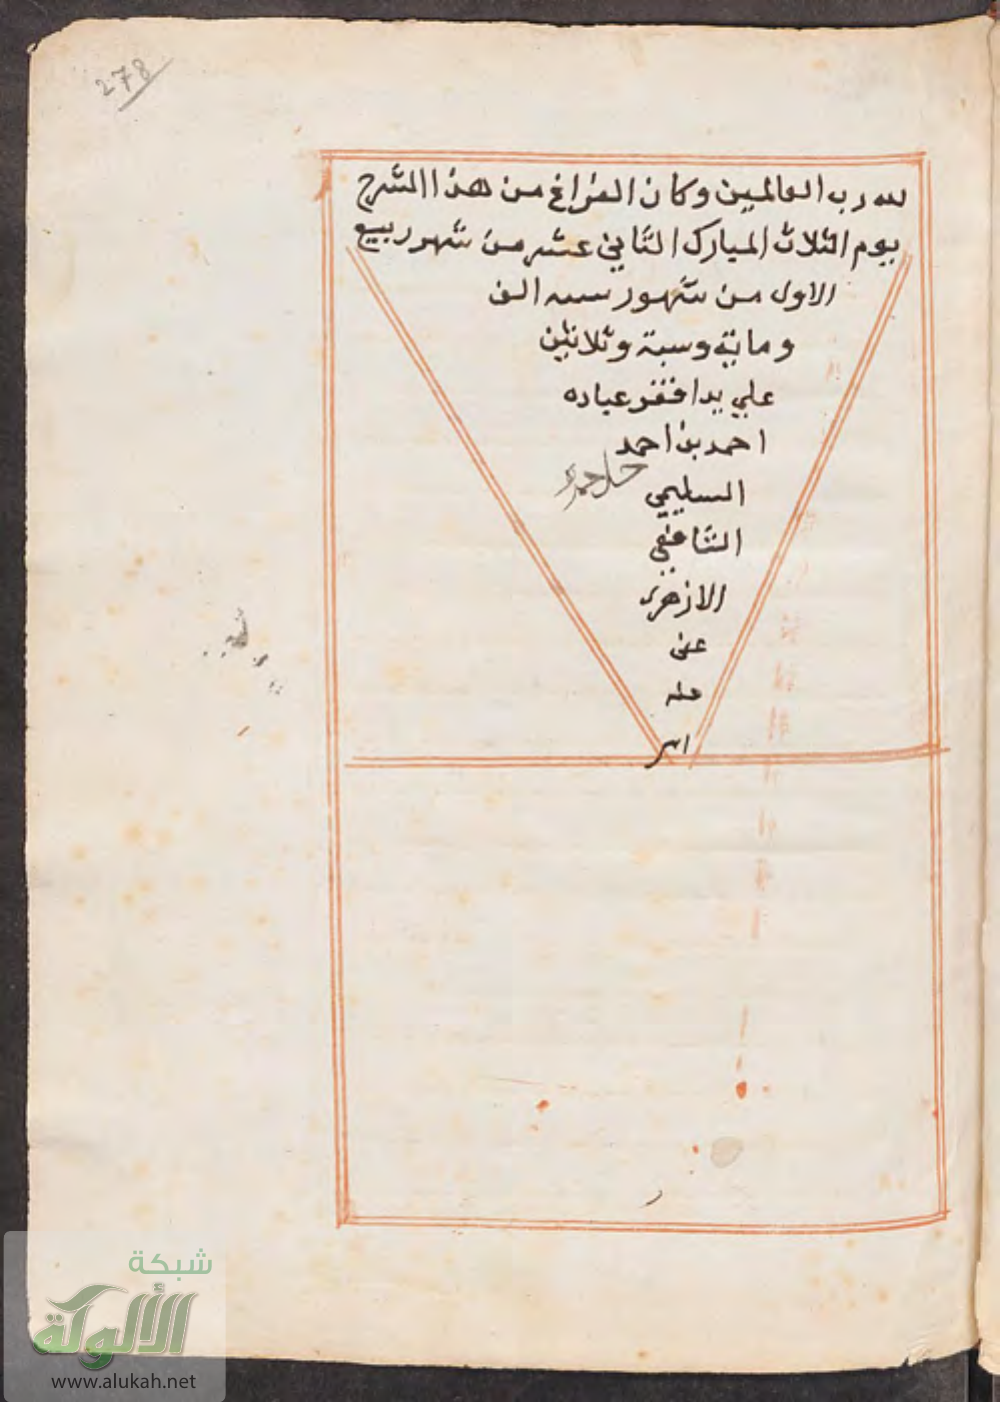 278
لله رب العالمين وكان الفراغ من هذا الشرح
يوم الثلاث المبارك الثاني عشر من شهور ربيع
الاول من شهور سنه الف
ومايه وستة وثلاثين
علي يد افقر عباده
احمد بن احمد
السليمي
الشافعي
الازهري
عفى
عنه
شبكة
الألوكة
www.alukah.net